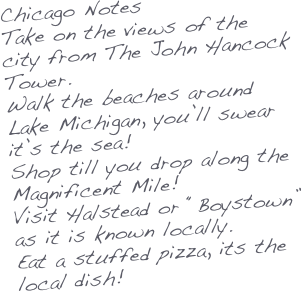 Chicago Notes
Take on the views of the
city from The John Hancock
Tower.
Walk the beaches around
Lake Michigan, you'll swear
it's the sea!
Shop till you drop along the
Magnificent Mile!
Visit Halstead or "Boystown"
as it is known locally.
Eat a stuffed pizza, its the
local dish!